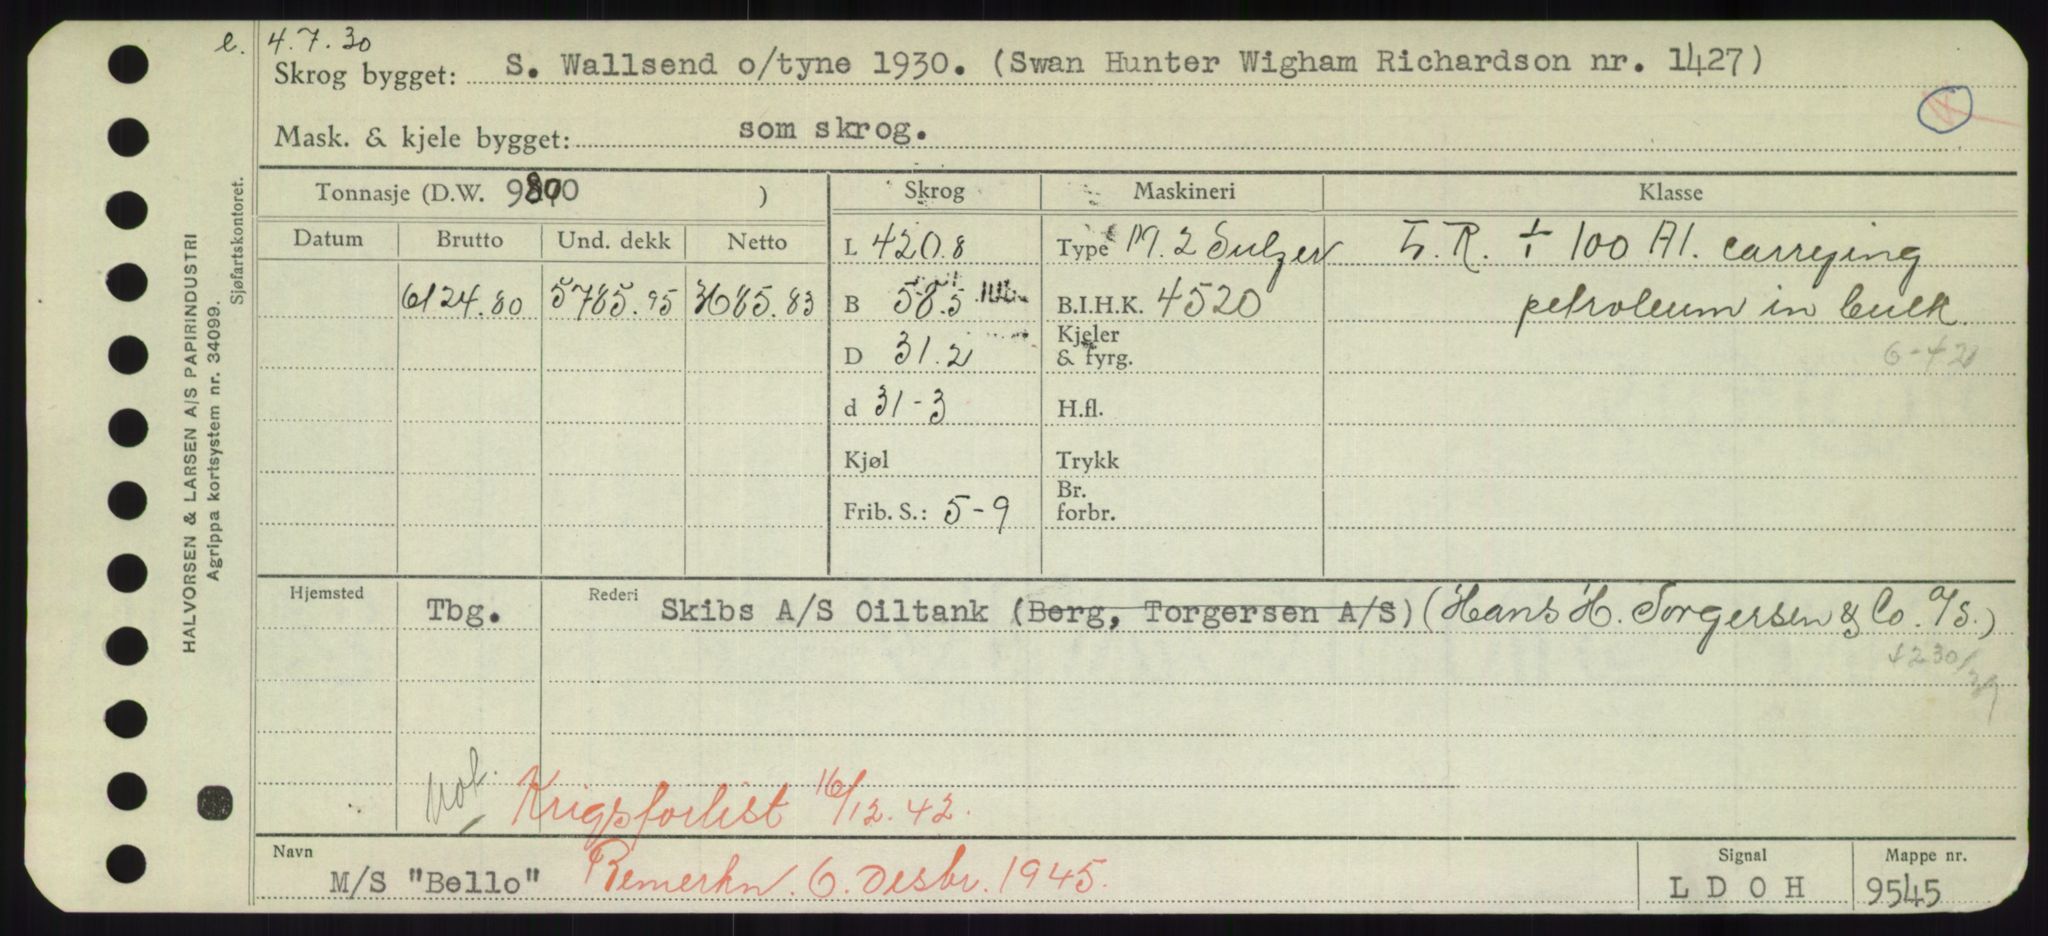 l. 4.7.30
Skrog bygget: S. Wallsend o/tyne 1930. (Swan Hunter Wigham Richardson nr. 1427)
Mask. & kjele bygget: som skrog.
Tonnasje (D.W. 9800 )
Skrog
Maskineri
Klasse
Datum Brutto Und. dekk Netto
6124.80 5785.95 3685.83
L 420.8
B 58.5
D 31.2
d 31-3
Kjøl
Frib. S.: 5-9
Type M. 2 Sulzer
B.I.H.K. 4520
Kjeler
& fyrg.
H.fl.
Trykk
Br.
forbr.
L. R. + 100 A1. carrying
petroleum in bulk
6-42
Hjemsted Tbg.
Rederi Skibs A/S Oiltank (Berg, Torgersen A/S) (Hans H. Torgersen & Co. A/S.)
Krigsforlist 16/12.42.
Navn M/S "Bello" Bemerkn. 6. Desbr. 1945.
Signal L D O H
Mappe nr. 9545
HALVORSEN & LARSEN A/S PAPIRINDUSTRI
Agrippa kortsystem nr. 34099.
Sjøfartskontoret.